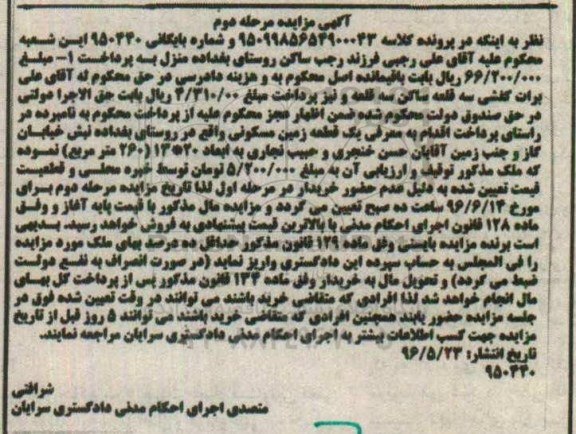 آگهی مزایده مرحله دوم
نظر به اینکه در پرونده کلاسه ۹۵۰۹۹۸۵۶۵۴۹۰۰۰۴۳ و شماره بایگانی ۹۵۰۴۴۰ این شعبه
محکوم علیه آقای علی رجبی فرزند رجب ساکن روستای بغداده منزل به پرداخت ۱- مبلغ
۶۶/۲۰۰/۰۰۰ ریال بابت باقیمانده اصل محکوم به و هزینه دادرسی در حق محکوم له آقای علی
برات کفشی سه قلعه ساکن سه قلعه و نیز پرداخت مبلغ ۴/۳۱۰/۰۰ ریال بابت حق الاجرا دولتی
در حق صندوق دولت محکوم شده ضمن اظهار عجز محکوم علیه از پرداخت محکوم به نامبرده در
راستای پرداخت اقدام به معرفی یک قطعه زمین مسکونی واقع در روستای بغداده نبش خیابان
گاز و جنب زمین آقایان حسن خنجری و حبیب نجاری به ابعاد ۲۰*۱۳ (۲۶۰ متر مربع) نموده
که ملک مذکور توقیف و ارزیابی آن به مبلغ ۵/۲۰۰/۰۰۰ تومان توسط خبره محلسی و قطعیت
قیمت تعیین شده به دلیل عدم حضور خریدار در مرحله اول لذا تاریخ مزایده مرحله دوم برای
مورخ ۹۶/۶/۱۴ ساعت ده صبح تعیین می گردد و مزایده مال مذکور با قیمت پایه آغاز و وفق
ماده ۱۲۸ قانون اجرای احکام مدنی با بالاترین قیمت پیشنهادی به فروش خواهد رسید. بدیهی
است برنده مزایده بایستی وفق ماده ۱۲۹ قانون مذکور حداقل ده درصد بهای ملک مورد مزایده
را فی المجلس به حساب سپرده این دادگستری واریز نماید (در صورت انصراف به نفع دولت
ضبط می گردد) و تحویل مال به خریدار وفق ماده ۱۳۴ قانون مذکور پس از پرداخت کل بهای
مال انجام خواهد شد لذا افرادی که متقاضی خرید باشند می توانند در وقت تعیین شده فوق در
جلسه مزایده حضور یابند همچنین افرادی که متقاضی خرید باشند می توانند ۵ روز قبل از تاریخ
مزایده جهت کسب اطلاعات بیشتر به اجرای احکام مدنی دادگستری سرایان مراجعه نمایند.
تاریخ انتشار: ۹۶/۵/۲۳
۹۵۰۴۴۰
شرافتی
متصدی اجرای احکام مدنی دادگستری سرایان